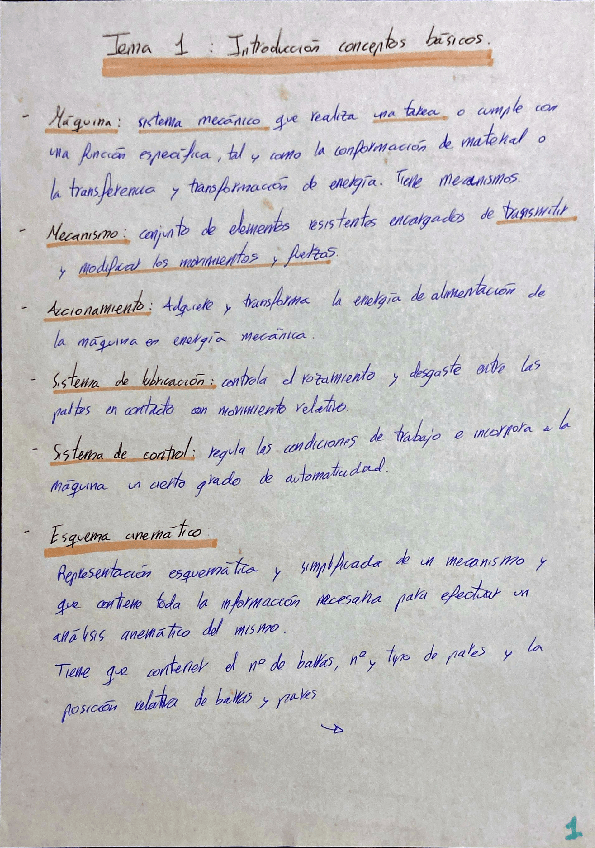 Tema 1 : Introducción conceptos básicos.
- Máquina: sistema mecánico que realiza una tarea o cumple con
una función específica, tal y como la conformación de material o
la transferencia y transformación de energía. Tiene mecanismos.
- Mecanismo: conjunto de elementos resistentes encargados de transmitir
y modificar los movimientos y fuerzas.
- Accionamiento: Adquiere y transforma la energía de alimentación de
la máquina en energía mecánica.
- Sistema de lubricación: controla el rozamiento y desgaste entre las
partes en contacto con movimiento relativo.
- Sistema de control: regula las condiciones de trabajo e incorpora a la
máquina un cierto grado de automaticidad.
- Esquema cinemático.
Representación esquemática y simplificada de un mecanismo y
que contiene toda la información necesaria para efectuar un
análisis cinemático del mismo.
Tiene que contener el nº de barras, nº y tipo de pares y la
posición relativa de barras y pares
→
1